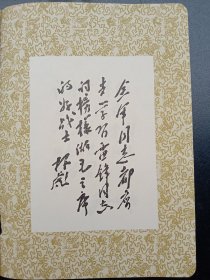 全军同志都
学习雷锋同志
的榜样做毛主席
的好战士 林彪